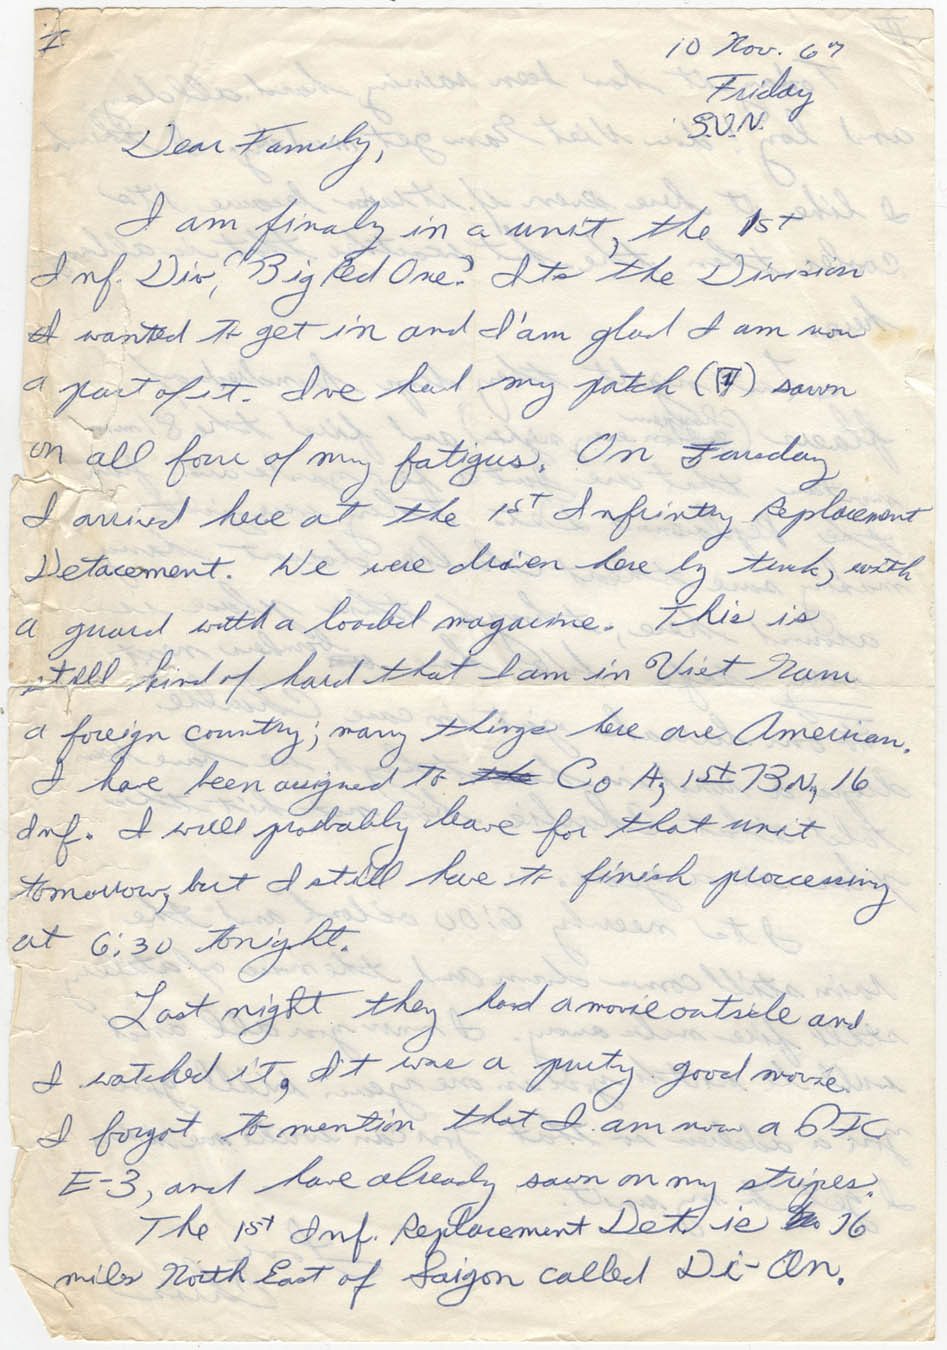 I
10 Nov. 67
Friday
S.V.N.
Dear Family,
I am finaly in a unit, the 1st
Inf. Div, "Big Red One". Its the Division
I wanted to get in and I'am glad I am now
a part of it. I've had my patch (1) sawn
on all four of my fatigus. On Tuesday
I arrived here at the 1st Infrintry Replacement
Detacement. We were driven here by truk, with
a guard with a loaded magazine. This is
still kind of hard that I am in Viet Nam
a foreign country; many things here are American.
I have been assigned to the Co A, 1st BN, 16
Inf. I will probably leave for that unit
tomorrow, but I still have to finish proccessing
at 6:30 tonight.
Last night they had a movie outside and
I watched it, It was a purty good movie.
I forgot to mention that I am now a PFC
E-3, and have already sawn on my stripes.
The 1st Inf. Replacement Det. is 16
miles North East of Saigon called Di-An.